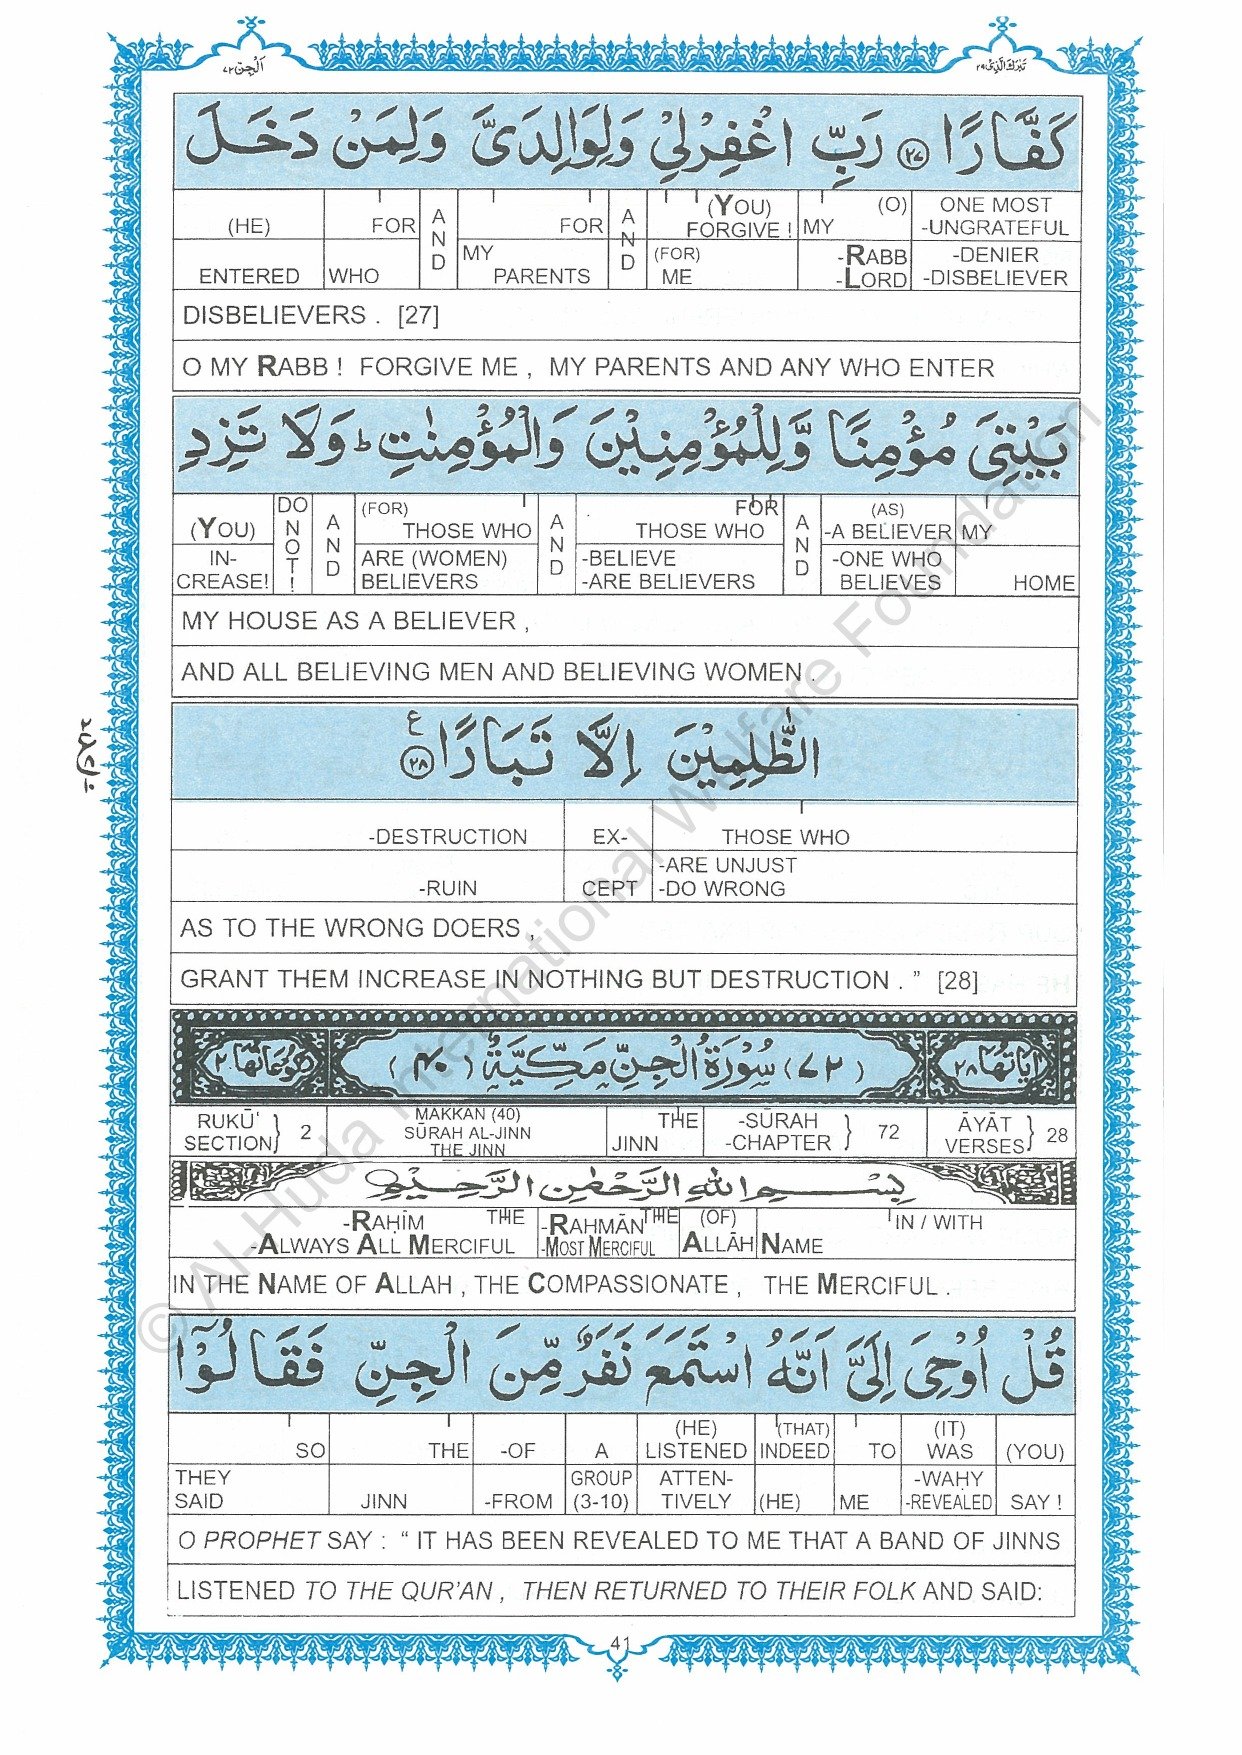 اَلْجِنّ ٧٢
تَبٰرَكَ الَّذِیْ ٢٩
كَفَّارًا ۝٢٧ رَبِّ اغْفِرْلِيْ وَلِوَالِدَیَّ وَلِمَنْ دَخَلَ
(HE) FOR AND FOR AND (YOU) FORGIVE ! MY (O) ONE MOST -UNGRATEFUL
ENTERED WHO MY PARENTS (FOR) ME -RABB -LORD -DENIER -DISBELIEVER
DISBELIEVERS . [27]
O MY RABB ! FORGIVE ME , MY PARENTS AND ANY WHO ENTER
بَيْتِیَ مُؤْمِنًا وَّلِلْمُؤْمِنِيْنَ وَالْمُؤْمِنٰتِ ؕ وَلَا تَزِدِ
(YOU) DO NOT ! AND (FOR) THOSE WHO AND FOR THOSE WHO AND (AS) -A BELIEVER MY
IN- CREASE! ARE (WOMEN) BELIEVERS -BELIEVE -ARE BELIEVERS -ONE WHO BELIEVES HOME
MY HOUSE AS A BELIEVER ,
AND ALL BELIEVING MEN AND BELIEVING WOMEN .
الظّٰلِمِيْنَ اِلَّا تَبَارًا ۝٢٨ ع
-DESTRUCTION EX- THOSE WHO
-RUIN CEPT -ARE UNJUST -DO WRONG
AS TO THE WRONG DOERS ,
GRANT THEM INCREASE IN NOTHING BUT DESTRUCTION . ” [28]
اٰيَاتُهَا ٢٨ (٧٢) سُوْرَةُ الْجِنِّ مَكِّيَّةٌ (٤٠) رُكُوْعَاتُهَا ٢
RUKŪ‘ SECTION } 2 MAKKAN (40) SŪRAH AL-JINN THE JINN THE JINN -SŪRAH -CHAPTER } 72 ĀYĀT VERSES } 28
بِسْمِ اللهِ الرَّحْمٰنِ الرَّحِيْمِ
-RAḤĪM THE -RAHMĀN THE (OF) IN / WITH
-ALWAYS ALL MERCIFUL -MOST MERCIFUL ALLĀH NAME
IN THE NAME OF ALLAH , THE COMPASSIONATE , THE MERCIFUL .
قُلْ اُوْحِیَ اِلَیَّ اَنَّهُ اسْتَمَعَ نَفَرٌ مِّنَ الْجِنِّ فَقَالُوْٓا
SO THE -OF A (HE) LISTENED (THAT) INDEED TO (IT) WAS (YOU)
THEY SAID JINN -FROM GROUP (3-10) ATTEN- TIVELY (HE) ME -WAHY -REVEALED SAY !
O PROPHET SAY : “ IT HAS BEEN REVEALED TO ME THAT A BAND OF JINNS
LISTENED TO THE QUR’AN , THEN RETURNED TO THEIR FOLK AND SAID:
41
© Al-Huda International Welfare Foundation